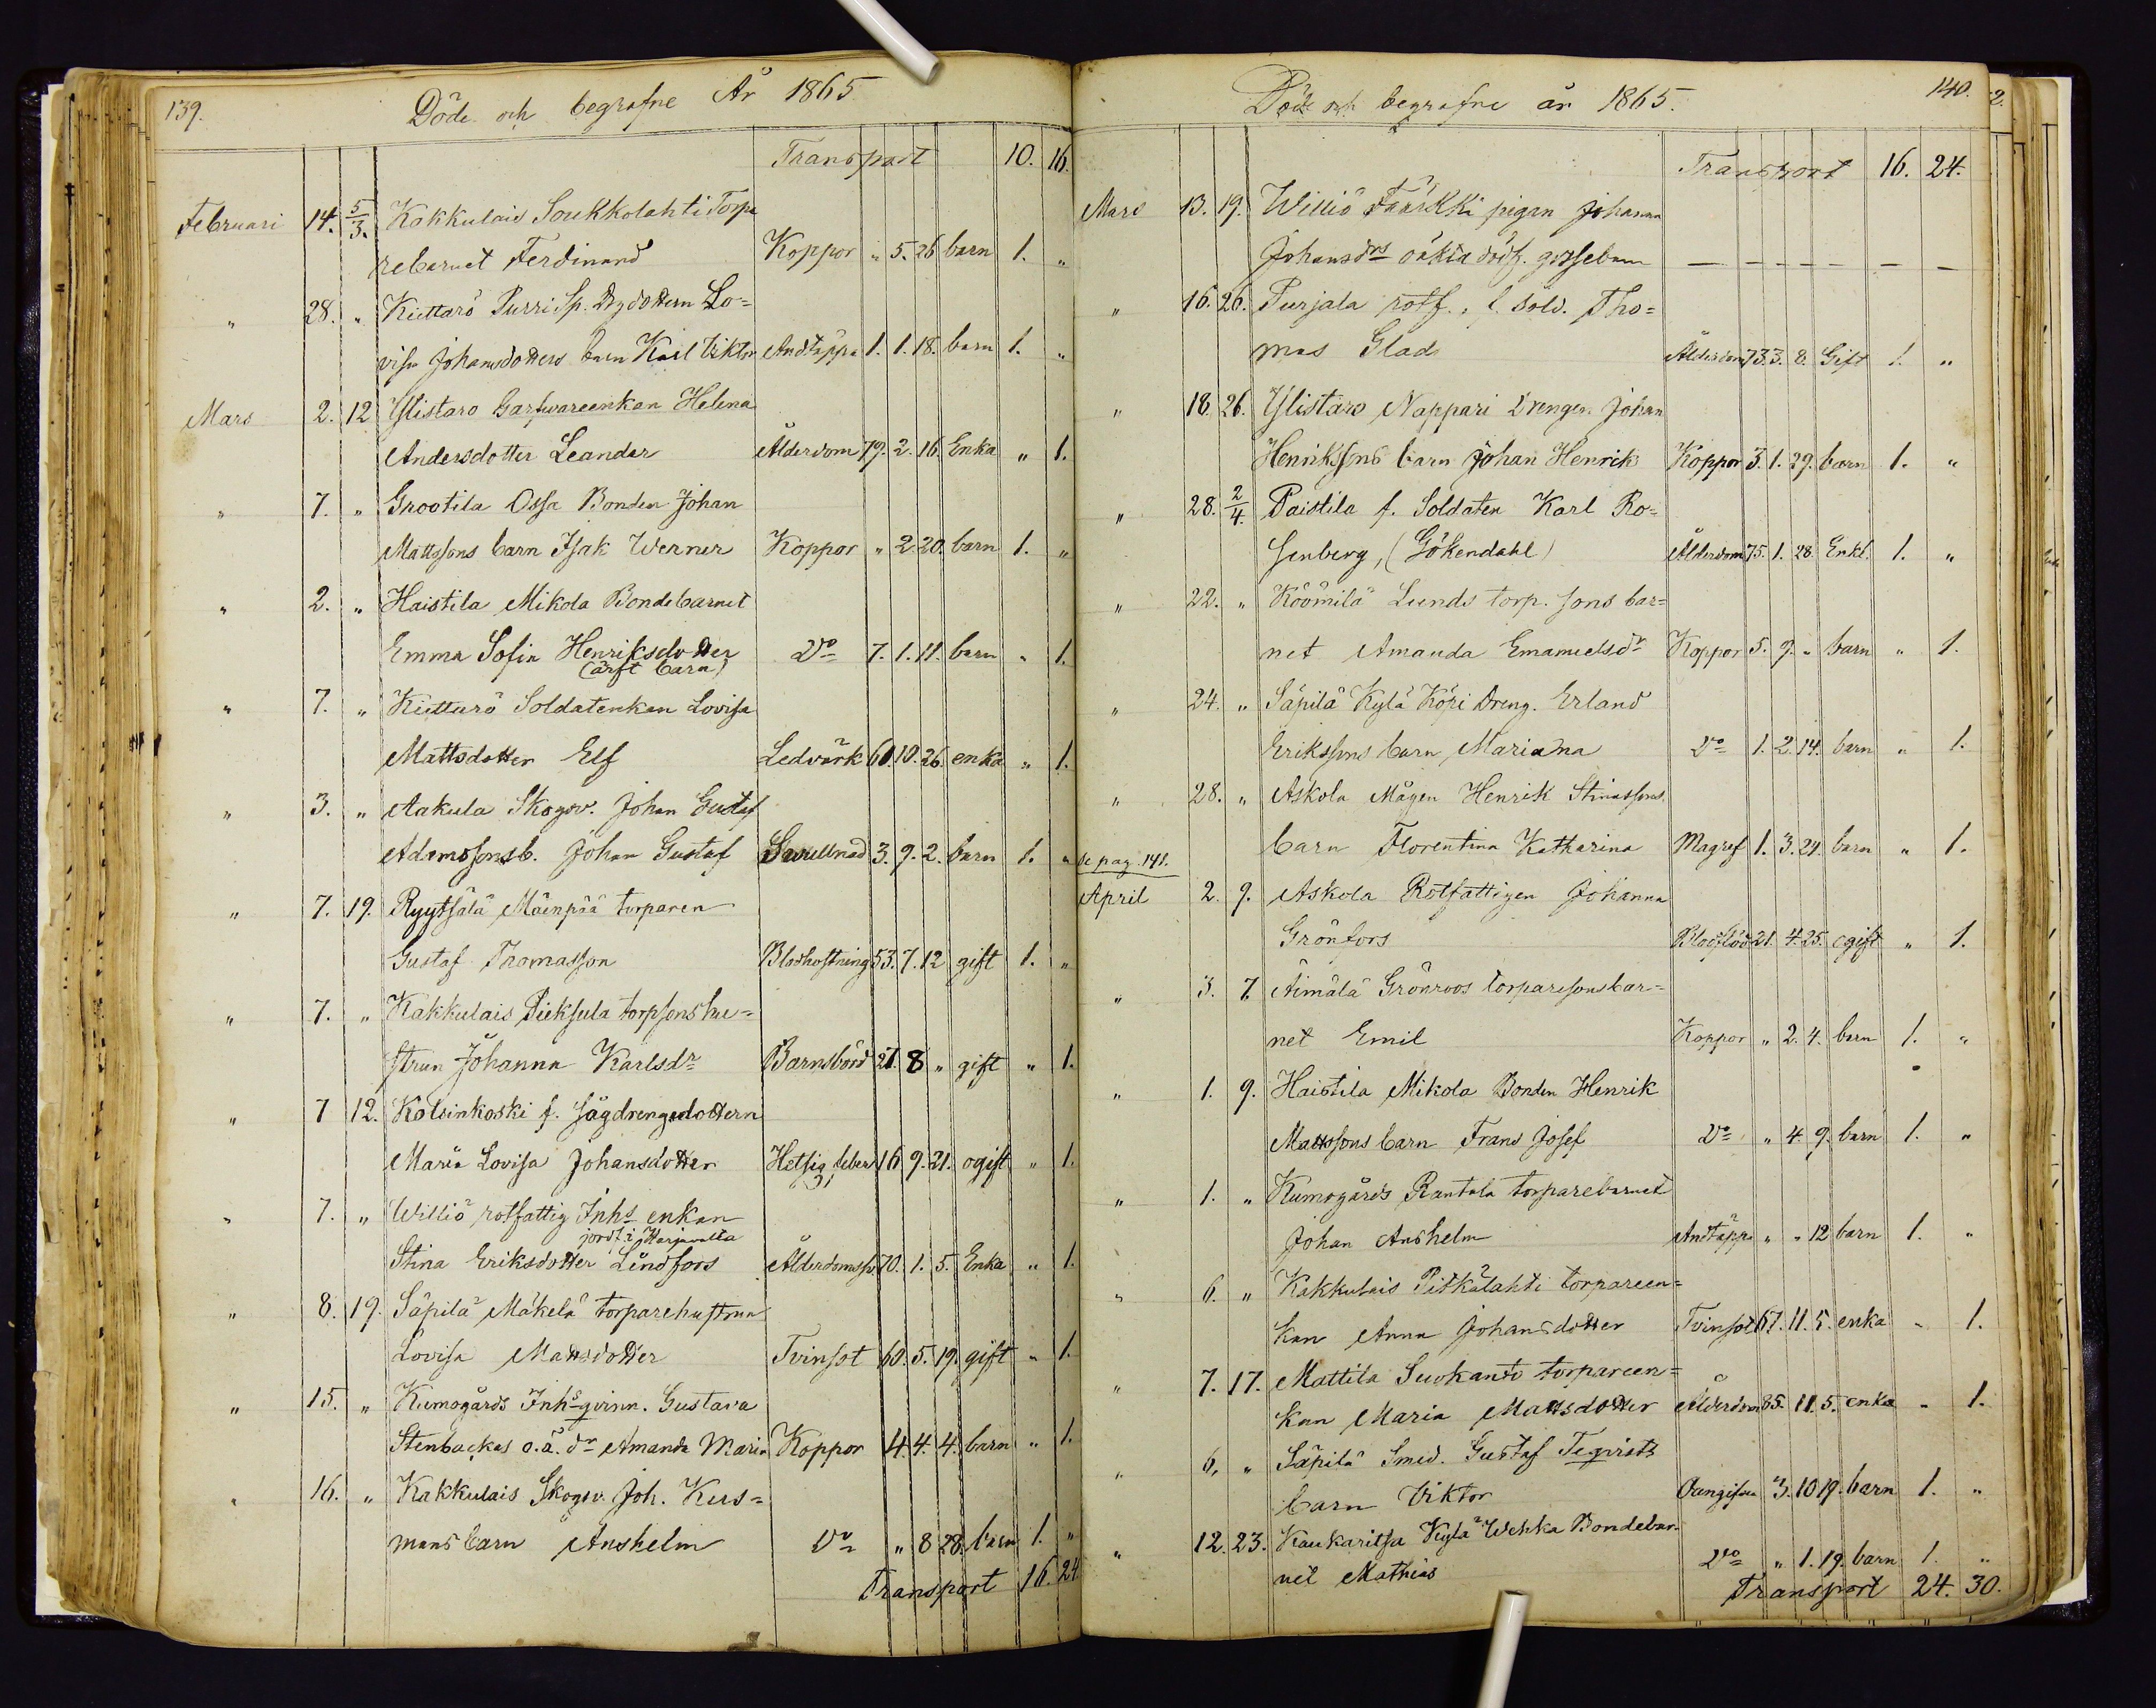 139.
Döde och begrafne År 1865
Transport 10. 16.
Februari 14. 5/3. Kakkulais Soukkolahti Torpa
rebarnet Ferdinand Koppor " 5. 26 barn 1. "
" 28. " Kiettarö Purri Sp. Dydottern Lo=
visa Johansdotters barn Karl Viktor Andtäppa 1. 1. 18. barn 1. "
Mars 2. 12 Ylistaro Garfvareenkan Helena
Andersdotter Leander Ålderdom 79. 2. 16. Enka " 1.
" 7. " Grootila Ossa Bonden Johan
Mattssons barn Isak Werner Koppor " 2. 20. barn 1. "
" 2. " Haistila Mikola Bondebarnet
Emma Sofia Henriksdotter Do 7. 1. 11. barn " 1.
(ärft barn)
" 7. " Kiettarö Soldatenkan Lovisa
Mattsdotter Elf Ledvärk 60. 10. 26. enka " 1.
" 3. " Aakula Skogsv. Johan Gustaf
Adamssons b. Johan Gustaf Swullnad 3. 9. 2. barn 1. "
" 7. 19. Ryytsälä Mäenpää torparen
Gustaf Thomasson Blodhostning 53. 7. 12 gift 1. "
" 7. " Kakkulais Pieksula torpsonshu=
strun Johanna Karlsdr Barnsbörd 27. 8 " gift " 1.
" 7 12. Kolsinkoski f. Sågdrengsdottern
Maria Lovisa Johansdotter Hetsig feber 16 9. 21. ogift " 1.
" 7. " Williö rotfattig Inhs enkan
jordf. i Harjavalta
Stina Eriksdotter Lindfors Ålderdomssv. 70. 1. 5. Enka " 1.
" 8. 19. Säpilä Mäkelä torparehustrun
Lovisa Mattsdotter Tvinsot 60. 5. 19. gift " 1.
" 15. " Kumogårds Inhs qvinn. Gustava
Stenbackas o.ä. dr Amanda Maria Koppor 4. 4. 4. barn " 1.
" 16. " Kakkulais Skogsv. Joh. Kus=
mans barn Anshelm Do " 8 28. barn 1. "
Transport 16. 24
140.
Döde och begrafne år 1865.
Transport 16. 24.
Mars 13. 19. Williö Fäärkki pigan Johanna
Johansdrs oäkta dödf. gossebarn — — — — — — —
" 16. 26. Purjala rotf., f. Sold. Tho=
mas Glad Ålderdom 73. 3. 8. Gift 1. "
" 18. 26. Ylistaro Nappari Drengen Johan
Henrikssons barn Johan Henrik Koppor 3. 1. 29. barn 1. "
" 28. 2/4. Paistila f. Soldaten Karl Ro=
senberg, (Gökendahl) Ålderdom 75. 1. 28. Enkl. 1. "
" 22. " Köömilä Lunds torp. sons bar=
net Amanda Emanuelsdr Koppor 5. 9. " barn " 1.
" 24. " Säpilä Kylä Köpi Dreng. Erland
Erikssons barn Mariana Do 1. 2. 14. barn " 1.
" 28. " Askola Mågen Henrik Stinassons
barn Florentina Katharina Magref 1. 3. 24. barn " 1.
se pag. 141.
April 2. 9. Askola Rotfattigen Johanna
Grönfors Blodflöd 21. 4. 25. ogift " 1.
" 3. 7. Äimälä Grönroos torparesonsbar=
net Emil Koppor " 2. 4. barn 1. "
" 1. 9. Haistila Mikola Bonden Henrik
Mattssons barn Frans Josef Do " 4. 9. barn 1. "
" 1. " Kumogårds Rantala torparebarnet
Johan Anshelm Andtäppa " " 12 barn 1. "
" 6. " Kakkulais Pitkälahti torpareen=
kan Anna Johansdotter Tvinsot 67. 11. 5. enka " 1.
" 7. 17. Mattila Suokanto torpareen=
kan Maria Mattsdotter Ålderdom 85. 11. 5. enka " 1.
" 6, " Säpilä Smed. Gustaf Teqvists
barn Viktor Oangifven 3. 10 19. barn 1. "
" 12. 23. Kaukaritsa Kylä Wehka Bondebar=
net Mathias Do " 1. 19. barn 1. "
Transport 24. 30.